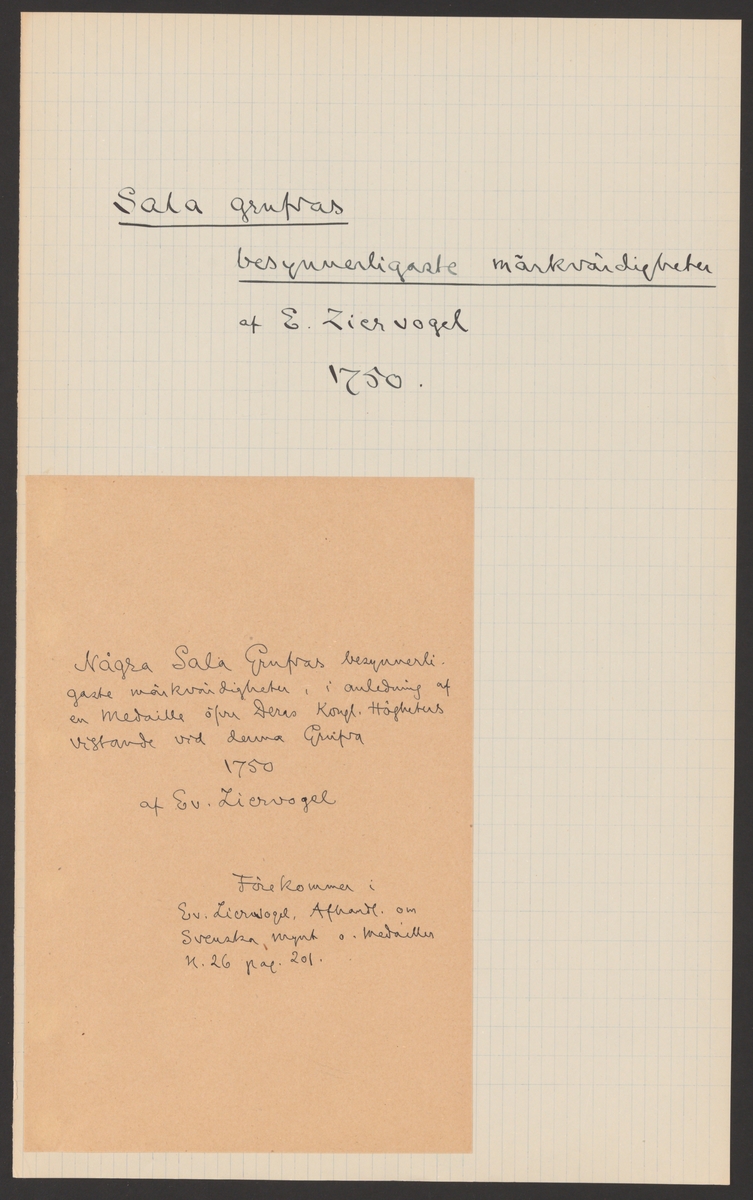 Sala grufvas
besynnerligaste märkvärdigheter
af E. Ziervogel
1750.
Några Sala Grufvas besynnerli-
gaste märkvärdigheter, i anledning af
en Medaille öfver Deras Kongl. Högheters
vistande vid denna Grufva
1750
af Ev. Ziervogel
Förekommer i
Ev. Ziervogel, Afhandl. om
Svenska mynt o. Medailler
N. 26 pag. 201.